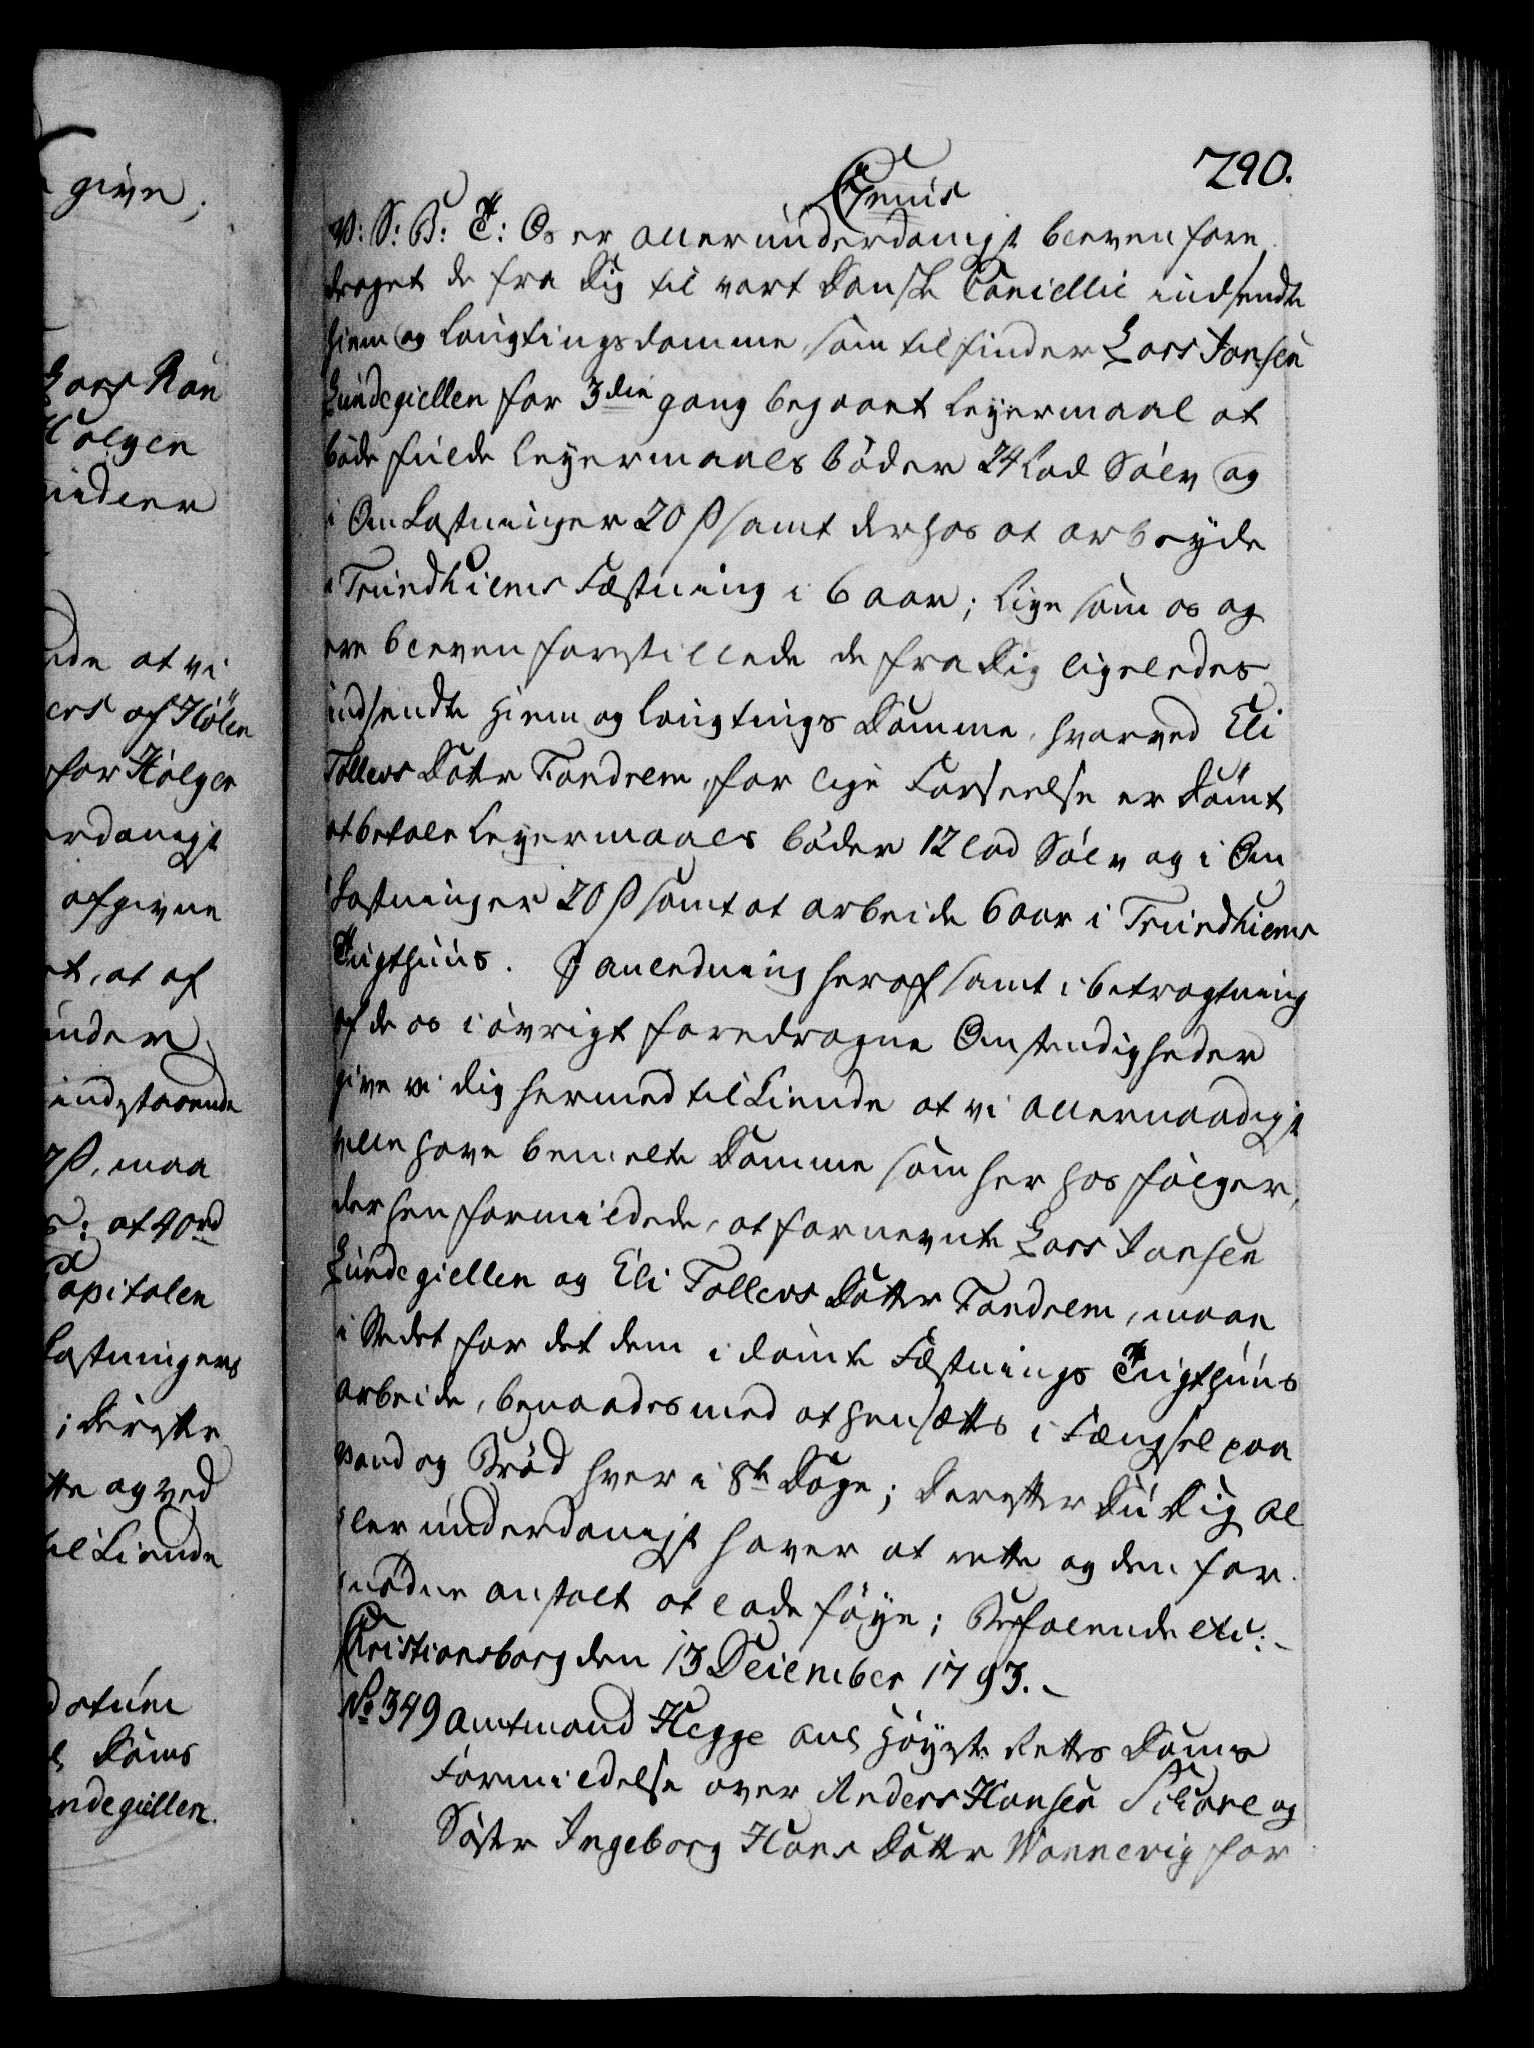 790.
Grevis
V: S: B: T: Os er allerunderdanigst bleven fore,
draget de fra Dig til vort Danske Cancellie indsendte
Hiem og Laugtingsdomme, som tilfinder Lars Jansen
Lundegiellen for 3die gang begaaet Leyermaal at
böde fulde Leyermaals böder 24 Lod Sölv og
i Omkastninger 20 ß samt derhos at arbeyde
i Trundhiems Fæstning i 6 aar; ligesom os og
ere bleven forestillede de fra Dig ligeledes
indsendte Hiem og Laugtings Domme, hvorved Eli
Tollevs Datter Tandrem, for lige Forseelse er Dömt
at betale Leyermaals böder 12 Lod Sölv og i Om
kastninger 20 ß samt at arbeide 6 aar i Trundhiems
Tugthuus. I anledning heraf samt i betragtning
af de os i övrigt foredragne Omstendigheder
give vi dig hermed tilkiende at vi allernaadigst
ville have bemelte Domme som her hos fölger,
derhen formildede, at fornevnte Lars Jansen
Lundegiellen og Eli Tollevs Datter Tandrem, maae
i Stedet for det dem idömte Fæstnings Tugthuus
arbeide, benaades med at hensættes i Fængsel paa
Vand og Bröd hver i 8te Dage; Derefter Du Dig al
lerunderdanigst haver at rette og den for
nödne anstalt at lade föye; Befalende etc:
Christiansborg den 13 December 1793.
No 349 Amtmand Hegge ang Höyeste Retts Doms
Formildelse over Anders Hansen Schare og
Söster Ingeborg Hans Datter Wannevig for
givne;
Lars Ran
Holgen
inden
nde at vi
ers af Hölen
for Holgen
erdanigst
afgivne
et, at af
under
indstaaende
7 ß, maa
s: at 4 ord
Capitalen
kastningers
i Derefter
tte og ved
tilkiende
datum
Doms
undegiellen.